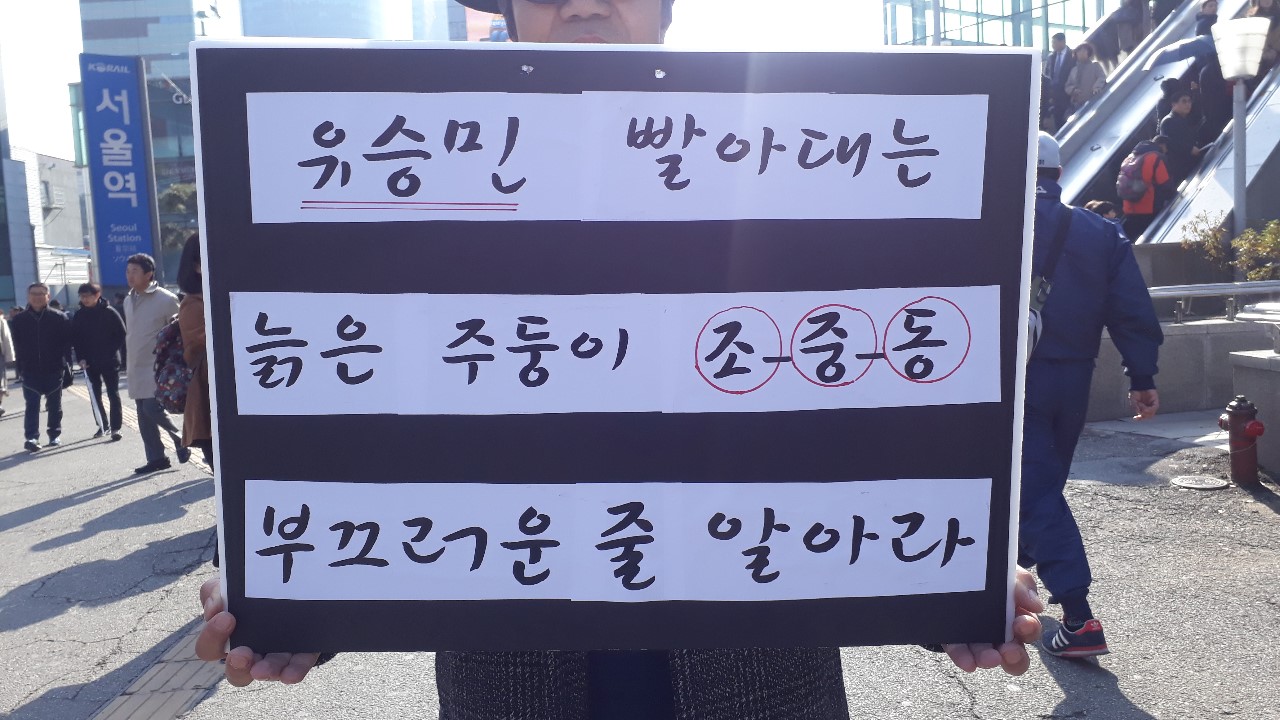 KORAIL
서울역
Seoul
Station
유승민 빨아대는
늙은 주둥이 조-중-동
부끄러운 줄 알아라